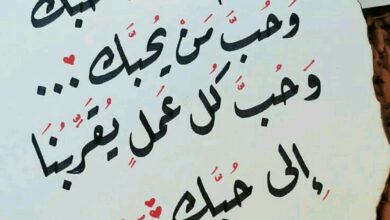 حبك
وَحُبَّ مَنْ يُحِبَّك ...
وَحُبَّ كُل عَملٍ يُقَرِّبُنَا
إِلى حُبِّك